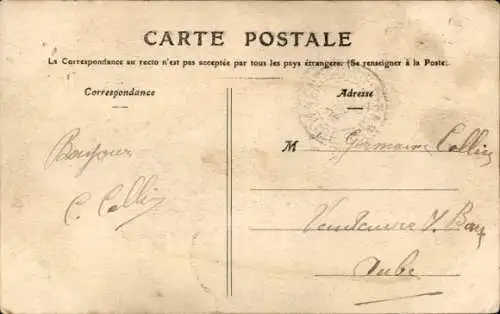 CARTE POSTALE
La Correspondance au recto n'est pas acceptée par tous les pays étrangers. (Se renseigner à la Poste).
Correspondance
Adresse
Bonjour
C. Collin
M Germaine Collin
Vendeuvre s/ Bar
Aube